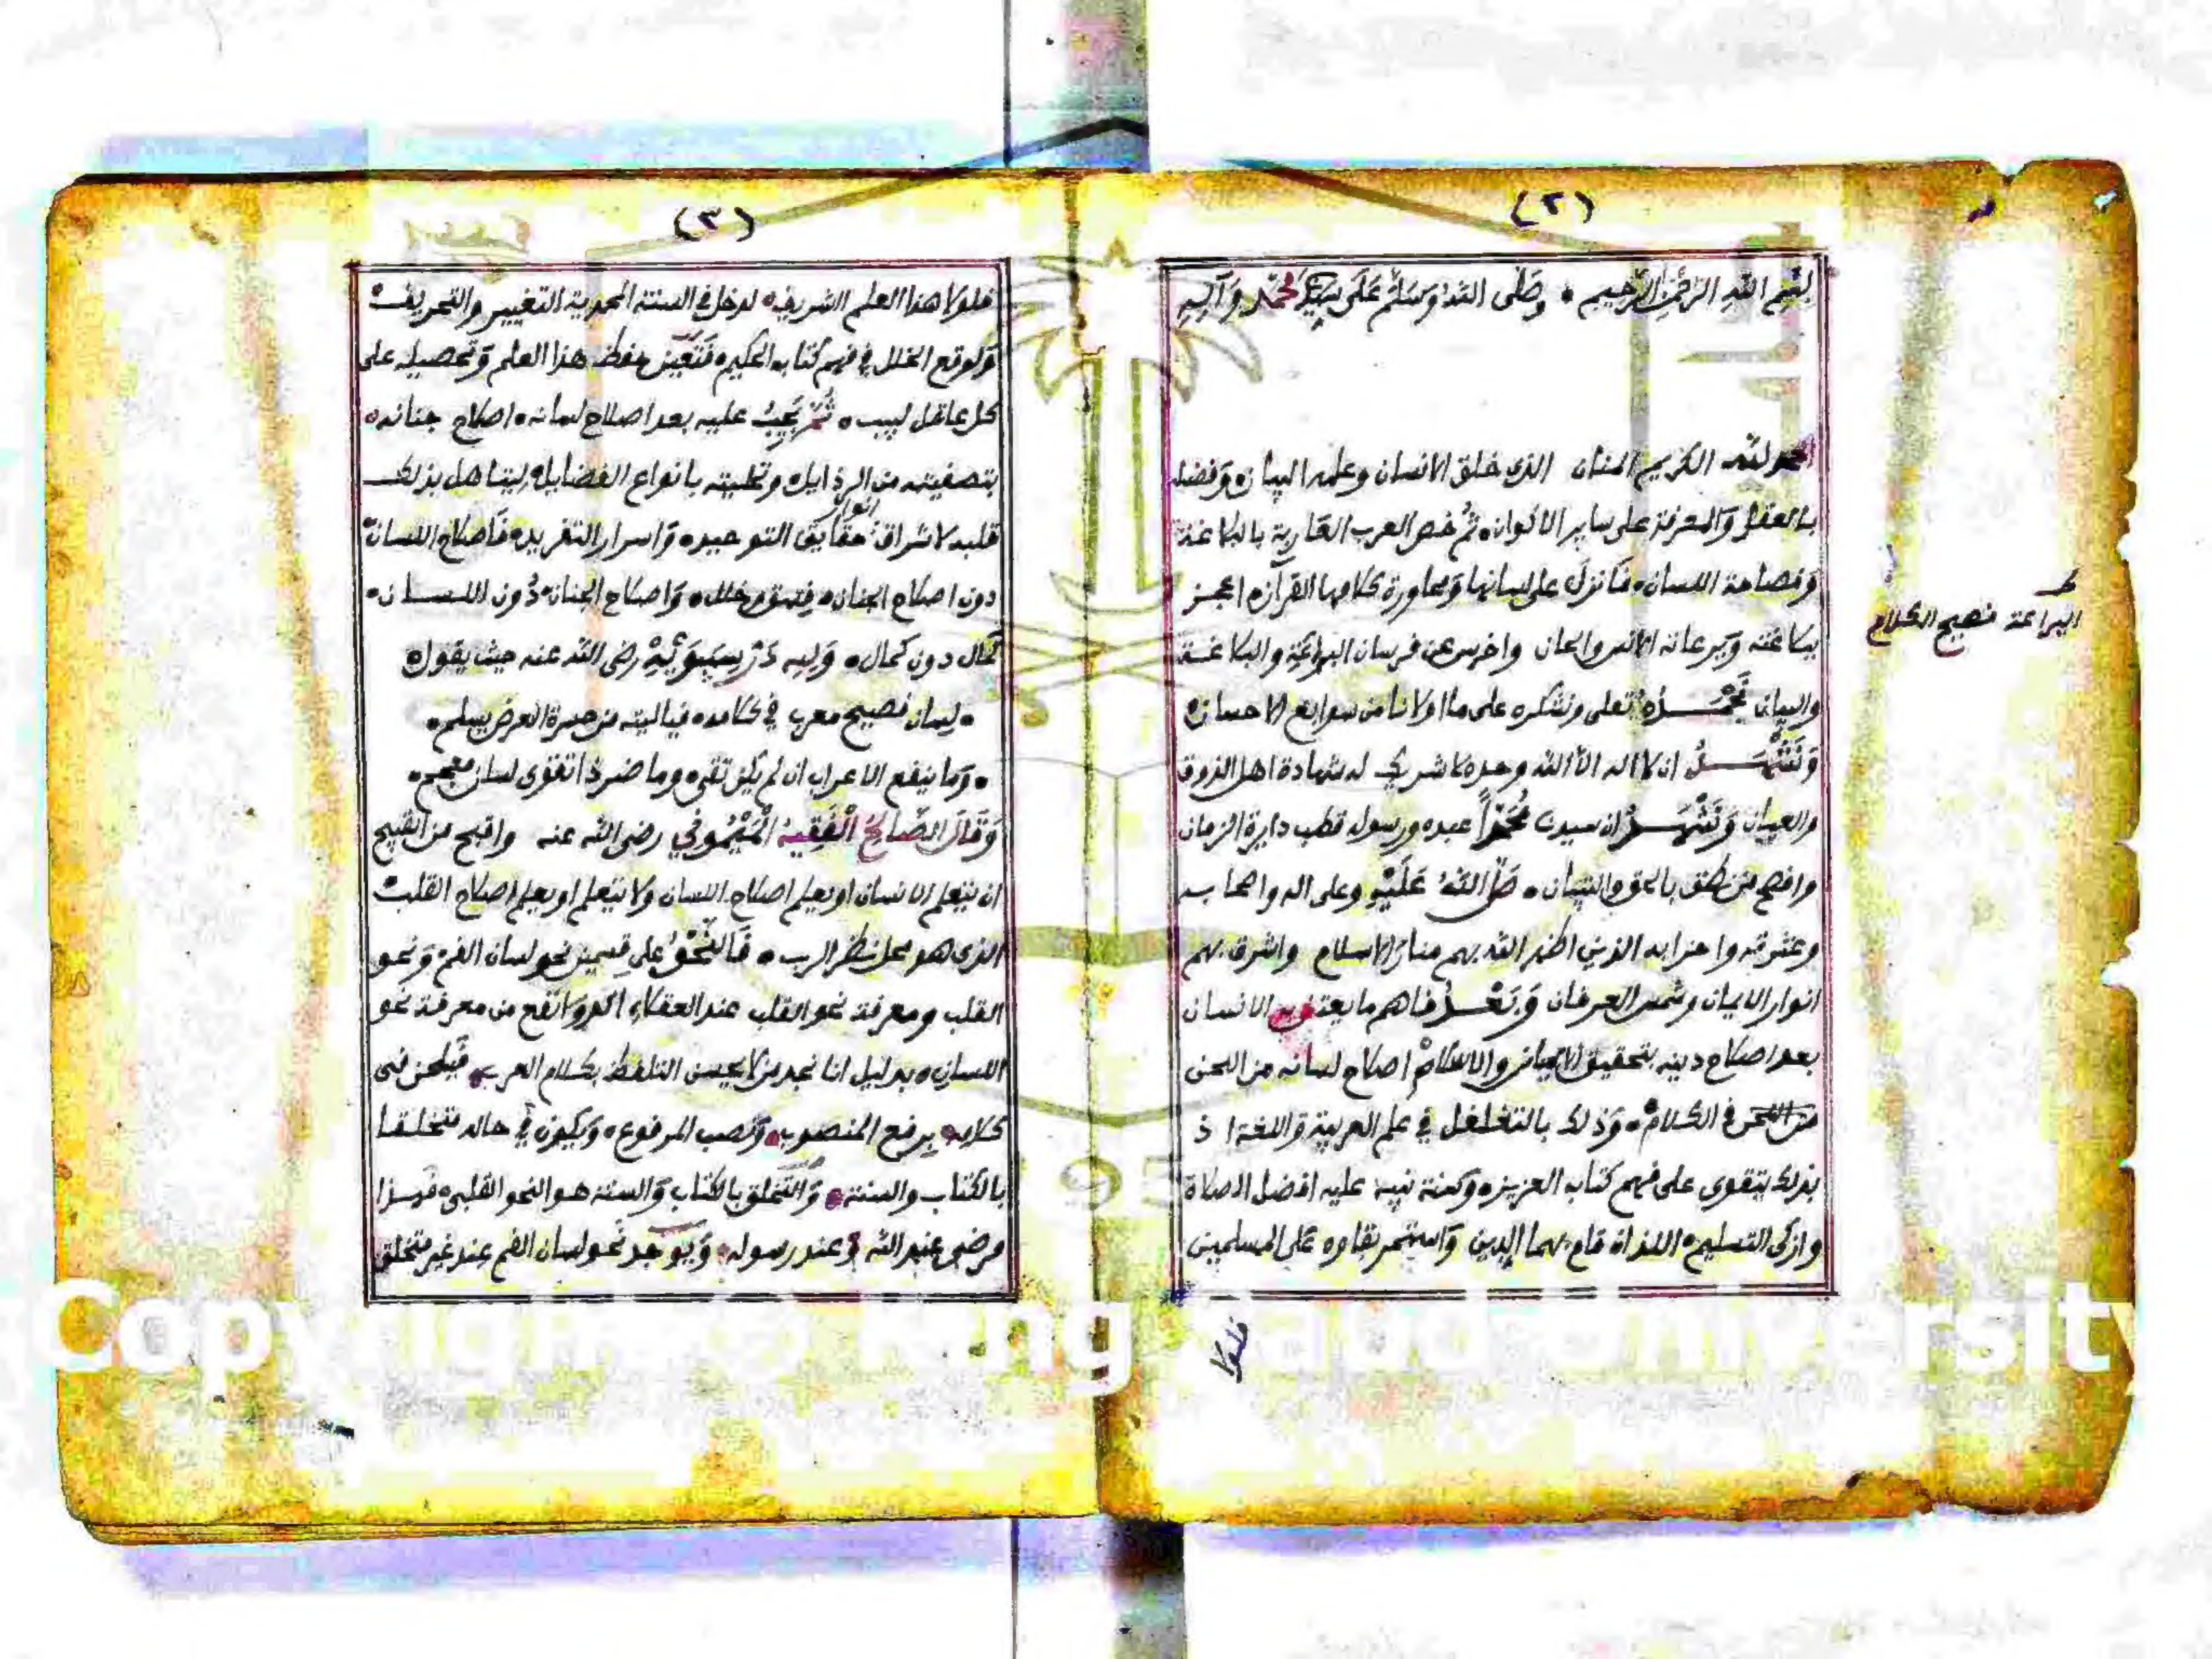 (٢)
بِسْمِ اللَّهِ الرَّحْمٰنِ الرَّحِيمِ ٠ وَصَلَّى اللهُ وَسَلَّمَ عَلَى سَيِّدِنَا مُحَمَّدٍ وَآلِهِ
الحمد لله الكريم المنان الذي خلق الانسان وعلمه البيان ٠ وَفضله
بالعقل وَالمعرفة على ساير الاكوان ٠ ثُمَّ خص العرب العَاربة بالبلاغة
وَفصاحة اللسان ٠ فَانزلَ على لسانها وَمحاورة كلامها القرآن ٠ اعجز
ببلاغته وَبرعاته الانس والجان واخرس عن فرسان البراعَةِ والبلاغة
والبيان نَحْمَدُهُ تعلى ونشكره على ما اولانا من سوابغ الاحسان ٠
وَنَشْهَدُ ان لا اله الا الله وحده لا شريك له شهادة اهل الذوق
والعيان وَنَشْهَدُ ان سيدنا مُحَمَّداً عبده ورسوله قطب دايرة الزمان
وافصح من نطق بالحق والتبيان ٠ صَلَّى اللهُ عَلَيْهِ وعلى اله واصحابه
وعترته واحزابه الذين اظهر الله بهم منار الاسلام واشرق بهم
انوار الايمان وشمس العرفان وَبَعْدُ فاهم ما يعتني به الانسان
بعد اصلاح دينه بتحقيق الايمان والاسلام اصلاح لسانه من اللحن
من اللحن في الكلام ٠ وَذلك بالتغلغل في علم العربية وَاللغة اذ
بذلك يتقوى على فهم كتاب العزيز ٠ وسنة نبيه عليه افضل الصلاة
وازكى التسليم ٠ اللذان قام بهما الدين وَاستمر بقاوه على المسلمين
فلولا
البراعة فصيح الكلام
(٣)
فلولا هذا العلم الشريف ٠ لدخل في السنة المحمدية التغيير والتحريف ٠
وَلوقع الخلل في فهم كتابه الحكيم ٠ فَتَعَيَّن حفظ هذا العلم وَتحصيله على
كل عاقل لبيب ٠ ثُمَّ يَجِبُ عليه بعد اصلاح لسانه ٠ اصلاح جنانه ٠
بتصفيته من الرذايل ٠ وتحليته بانواع الفضايل ٠ ليتاهل بذلك
قلبه لاشراق انوار حقايق التوحيد ٠ وَاسرار التفريد ٠ فَاصلاح اللسان ٠
دون اصلاح الجنان ٠ فسق وخلل ٠ وَاصلاح الجنان ٠ دُون اللسان ٠
كمال دون كمال ٠ وَلِلهِ دَرُّ سِيبَوَيْهِ رضي الله عنه حيث يقول ٠
٠ لسان فصيح معرب في كلامه ٠ فياليته من حسرة العرض يسلم ٠
٠ وَما ينفع الاعراب ان لم يكن تقى ٠ وما ضر ذا تقوى لسان معجم ٠
وَقَالَ الصَّالِحُ الْفَقِيهُ الْمَيْمُونِي رضي الله عنه واقبح من القبيح
ان يتعلم الانسان او يعلم اصلاح اللسان ولا يتعلم او يعلم اصلاح القلب ٠
الذي هو محل نظر الرب ٠ فَالنَّحْوُ على قسمين نحو لسان الفم ٠ وَنحو
القلب ومعرفة نحو القلب عند العقلاء اكد وَانفع من معرفة نحو
اللسان ٠ بدليل انا نجد من لا يحسن التلفظ بكلام العرب ٠ فَيلحن في
كلامه ٠ برفع المنصوب ٠ وَنصب المرفوع ٠ وَيكون في حاله متخلقا
بالكتاب والسنة ٠ وَالتَّخلق بالكتاب وَالسنة هو النحو القلبي ٠ فَهذا
مرضي عند الله وعند رسوله ٠ وَيوجد نَحو لسان الفم عند غير متخلق